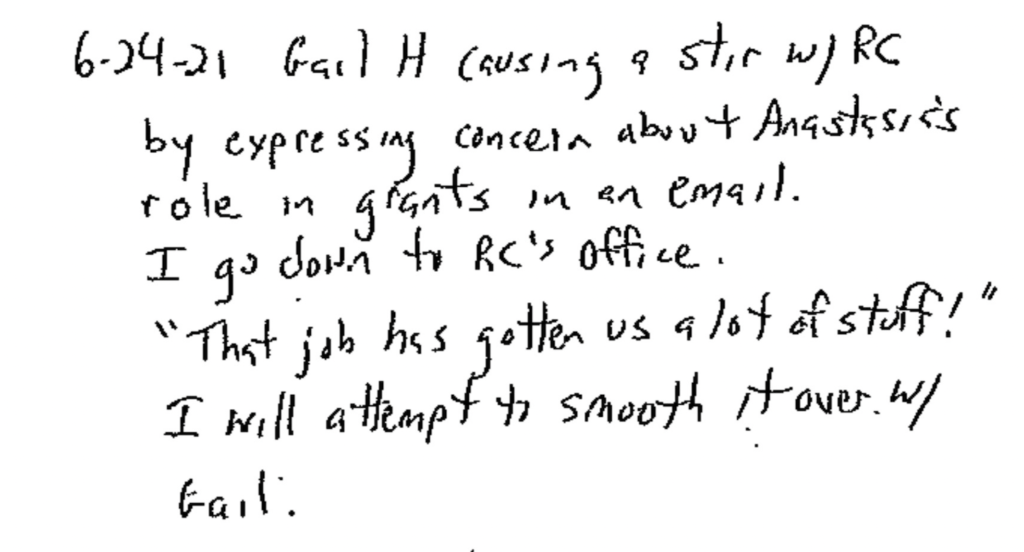 6-24-21 Gail H causing a stir w/ RC
by expressing concern about Anastasia's
role in grants in an email.
I go down to RC's office.
"That job has gotten us a lot of stuff!"
I will attempt to smooth it over w/
Gail.